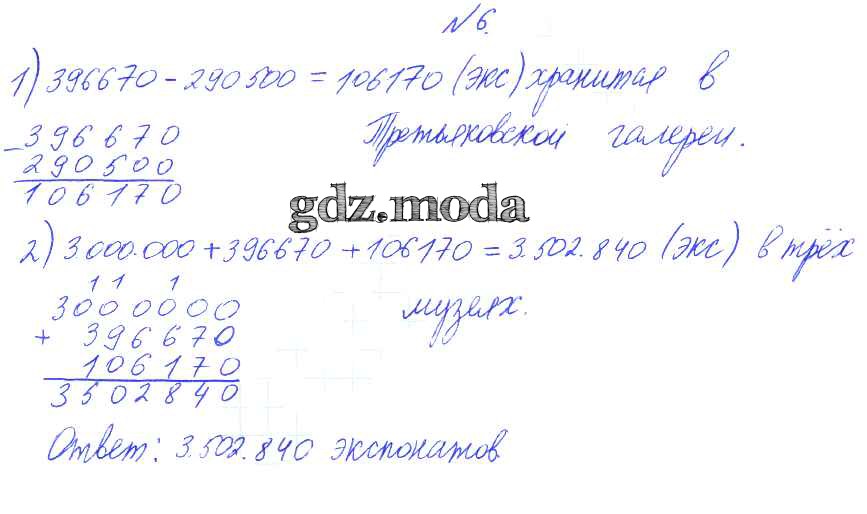 №6.
1) 396670 - 290500 = 106170 (экс) хранится в
Третьяковской галереи.
- 396670
290500
106170
gdz.moda
2) 3.000.000 + 396670 + 106170 = 3.502.840 (экс) в трёх
музеях.
1 1 1
3000000
+ 396670
106170
3502840
Ответ: 3.502.840 экспонатов